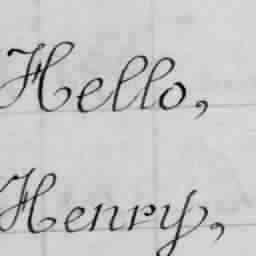 Hello,
Henry,